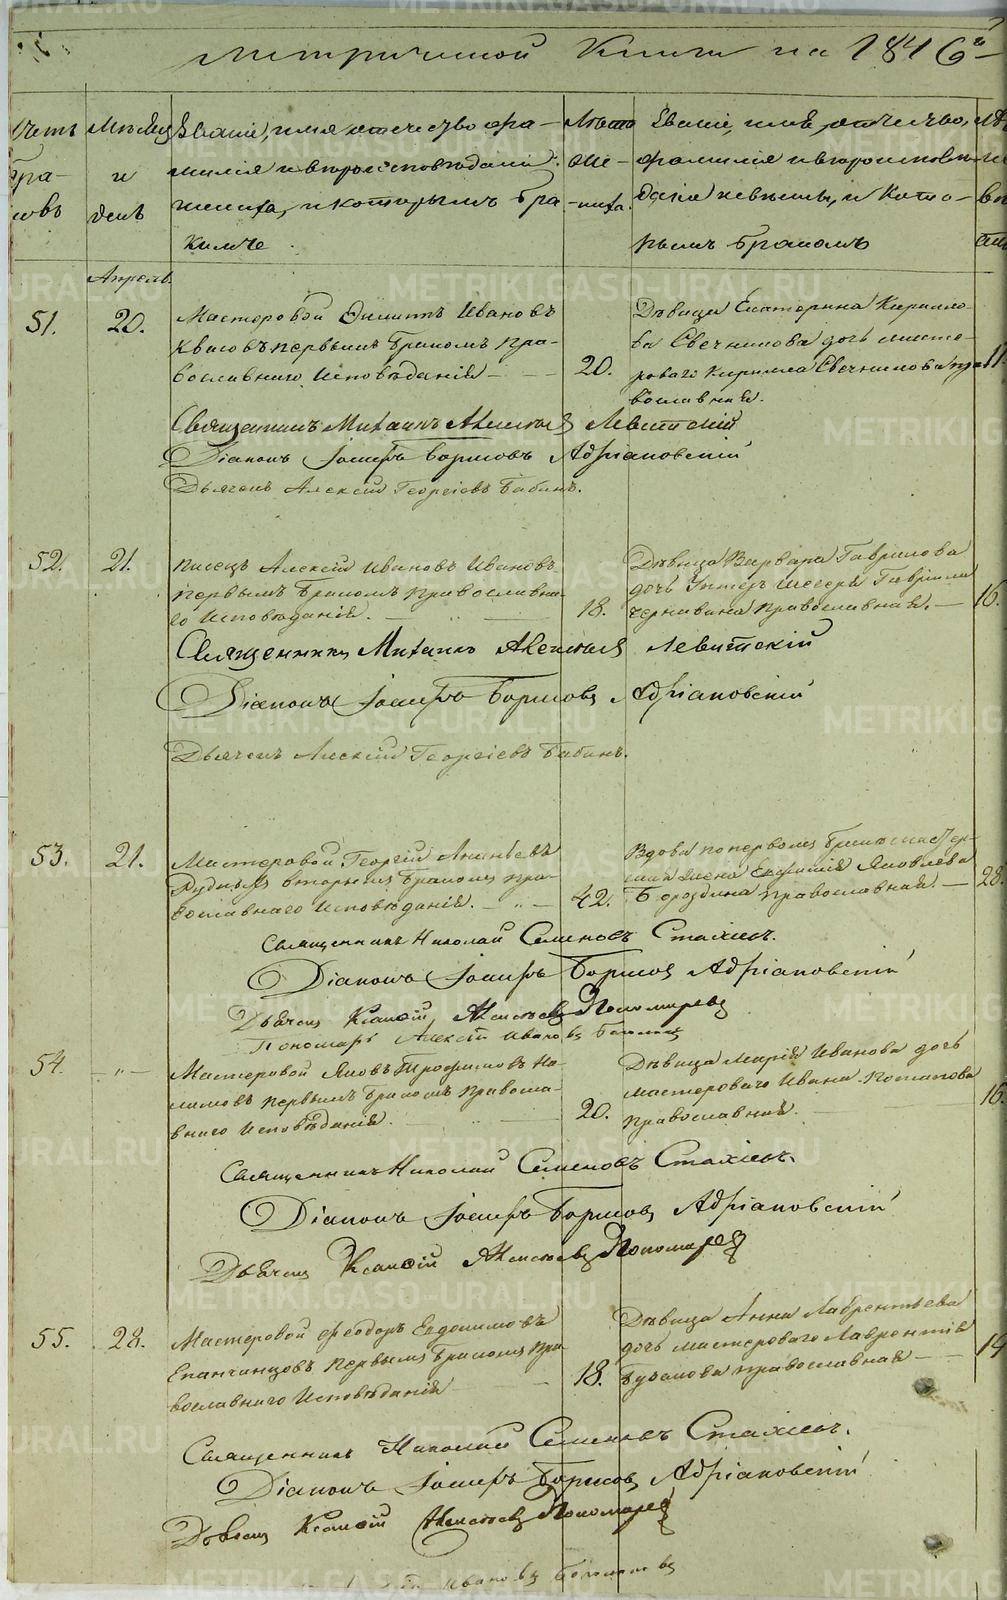 метрической Книги на 1846й
Счетъ
бра-
ковъ
Мѣсяцъ
и
день
Званіе, имя отчество фа-
милія и вѣроисповѣданіе
жениха, и которымъ бра
комъ
Лѣта
же-
-ниха.
Званіе, имя, отчество,
фамилія и вѣроисповѣ-
даніе невѣсты, и кото-
рымъ бракомъ
Апрель.
51. 20. Мастеровой Филипъ Ивановъ
Квасовъ первымъ бракомъ пра-
вославнаго Исповѣданія 20.
Дѣвица Екатерина Кирилло-
ва Свечникова дочь масте-
роваго Кирилла Свечникова пра
вославная.
Священникъ Михаилъ Алексѣевъ Левитскій
Діаконъ Іосифъ Борисовъ Адріановскій
Дьячекъ Алексій Георгіевъ Бабинъ.
52. 21. Писецъ Алексѣй Ивановъ Ивановъ
первымъ бракомъ православна-
го Исповѣданія. 18.
Дѣвица Варвара Гаврилова
дочь Унтеръ Шегера Гавріила
Чернавина Православная. 16.
Священникъ Михаилъ Алексѣевъ Левитскій
Діаконъ Іосифъ Борисовъ Адріановскій
Дьячекъ Алексій Георгіевъ Бабинъ.
53. 21. Мастеровой Георгій Ананьевъ
вторымъ бракомъ пра-
вославнаго Исповѣданія. 42.
Вдова по первомъ бракѣ мастер-
жена Евфимія Яковлева
Бороздина православная. 28.
Священникъ Николай Семеновъ Стахіевъ.
Діаконъ Іосифъ Борисовъ Адріановскій
Дьячекъ Алексѣевъ Пономаревъ
Пономарь Алексѣй Ивановъ
54. —"— Мастеровой Яковъ Трофимовъ На-
лимовъ первымъ бракомъ Правосла-
внаго Исповѣданія. 20.
Дѣвица Марія Иванова дочь
мастероваго Ивана Потапова
Православная. 16.
Священникъ Николай Семеновъ Стахіевъ.
Діаконъ Іосифъ Борисовъ Адріановскій
Дьячекъ Алексѣевъ Пономаревъ
55. 28. Мастеровой Феодоръ Евдокимовъ
Епанчинцовъ первымъ бракомъ пра
вославнаго Исповѣданія 18.
Дѣвица Анна Лаврентьева
дочь мастероваго Лаврентія
православная
Священникъ Николай Семеновъ Стахіевъ.
Діаконъ Іосифъ Борисовъ Адріановскій
Дьячекъ Алексѣевъ Пономаревъ
Ивановъ
METRIKI.GASO-URAL.RU